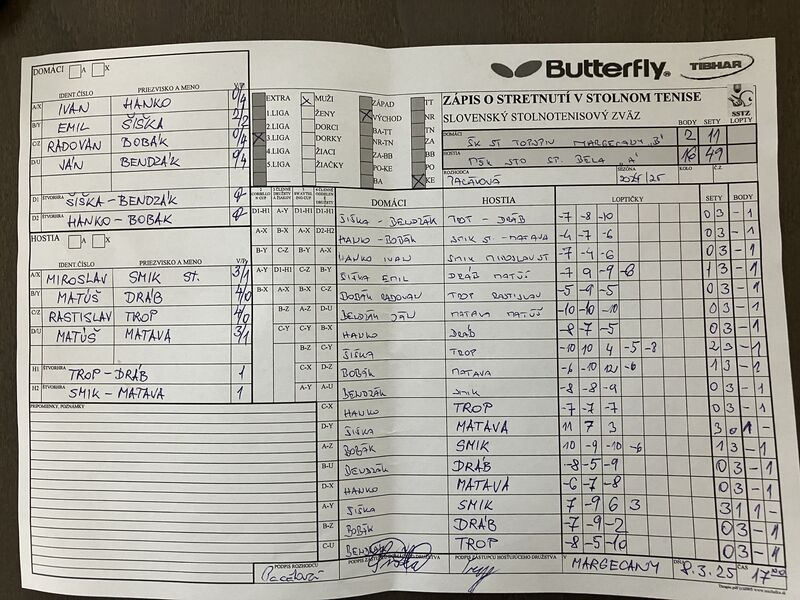 Butterfly
TIBHAR
DOMÁCI A X
IDENT. ČÍSLO PRIEZVISKO A MENO V/P
A/X IVAN HANKO 0/4
B/Y EMIL ŠIŠKA 2/2
C/Z RADOVAN BOBÁK 0/4
D/U JÁN BENDZÁK
D1 ŠTVORHRA ŠIŠKA-BENDZÁK
D2 HANKO-BOBÁK
HOSTIA A X
IDENT. ČÍSLO PRIEZVISKO A MENO V/P
A/X MIROSLAV SMIK ST. 3/1
B/Y MATÚŠ DRÁB 4/0
C/Z RASTISLAV TROP 4/0
D/U MATÚŠ MATAVA 3/1
H1 ŠTVORHRA TROP-DRÁB 1
H2 SMIK - MATAVA 1
PRIPOMIENKY, POZNÁMKY
EXTRA
1.LIGA
2.LIGA
3.LIGA
4.LIGA
5.LIGA
MUŽI
ŽENY
DORCI
DORKY
ŽIACI
ŽIAČKY
ZÁPAD
VÝCHOD
BA-TT
NR-TN
ZA-BB
PO-KE
BA
TT
NR
TN
ZA
BB
PO
KE
ZÁPIS O STRETNUTÍ V STOLNOM TENISE
SLOVENSKÝ STOLNOTENISOVÝ ZVÄZ
SSTZ
BODY SETY LOPTY
DOMÁCI ŠK ST TOPSPIN MARGECANY "B" 2 11
HOSTIA MŠK STO SP. BELÁ "A" 16 49
ROZHODCA SEZÓNA 2024/25 KOLO Č.Z.
DOMÁCI HOSTIA LOPTIČKY SETY BODY
ŠIŠKA - BENDZÁK TROP - DRÁB -7 -8 -10 0 3 - 1
HANKO - BOBÁK SMIK ST. - MATAVA -4 -7 -6 0 3 - 1
HANKO IVAN SMIK MIROSLAV ST -7 -4 -6 0 3 - 1
ŠIŠKA EMIL DRÁB MATÚŠ -7 9 -9 -8 1 3 - 1
BOBÁK RADOVAN TROP RASTISLAV -5 -9 -5 0 3 - 1
BENDZÁK JÁN MATAVA MATÚŠ -10 -10 -10 0 3 - 1
HANKO DRÁB -8 -7 -5 0 3 - 1
ŠIŠKA TROP -10 10 4 -5 -8 2 3 - 1
BOBÁK MATAVA -6 -10 12 -6 1 3 - 1
BENDZÁK SMIK -8 -8 -9 0 3 - 1
C-X HANKO TROP -7 -7 -7 0 3 - 1
D-Y ŠIŠKA MATAVA 11 7 3 3 0 1 -
A-Z BOBÁK SMIK 10 -9 -10 -6 1 3 - 1
B-U BENDZÁK DRÁB -8 -5 -9 0 3 - 1
D-X HANKO MATAVA -6 -7 -8 0 3 - 1
A-Y ŠIŠKA SMIK 7 -9 6 3 3 1 1 -
B-Z BOBÁK DRÁB -7 -9 -2 0 3 - 1
C-U BENDZÁK TROP -8 -5 -10 0 3 - 1
PODPIS ROZHODCU
PODPIS ZÁSTUPCU HOSŤUJÚCEHO DRUŽSTVA
V MARGECANY DŇA 8.3.25 ČAS 17:00